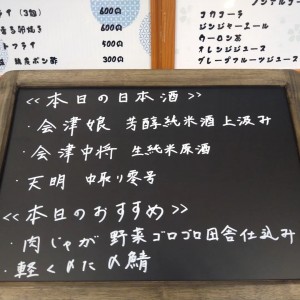 (3個) 600円
600円
トフラザ 500円
ポン酢 300円
コカコーラ
ジンジャーエール
ウーロン茶
オレンジジュース
グレープフルーツジュース
<<本日の日本酒>>
・会津娘 芳醇純米酒 上汲み
・会津中将 生純米原酒
・天明 中取り零号
<<本日のおすすめ>>
・肉じゃが 野菜ゴロゴロ田舎仕込み
・軽く〆た〆鯖